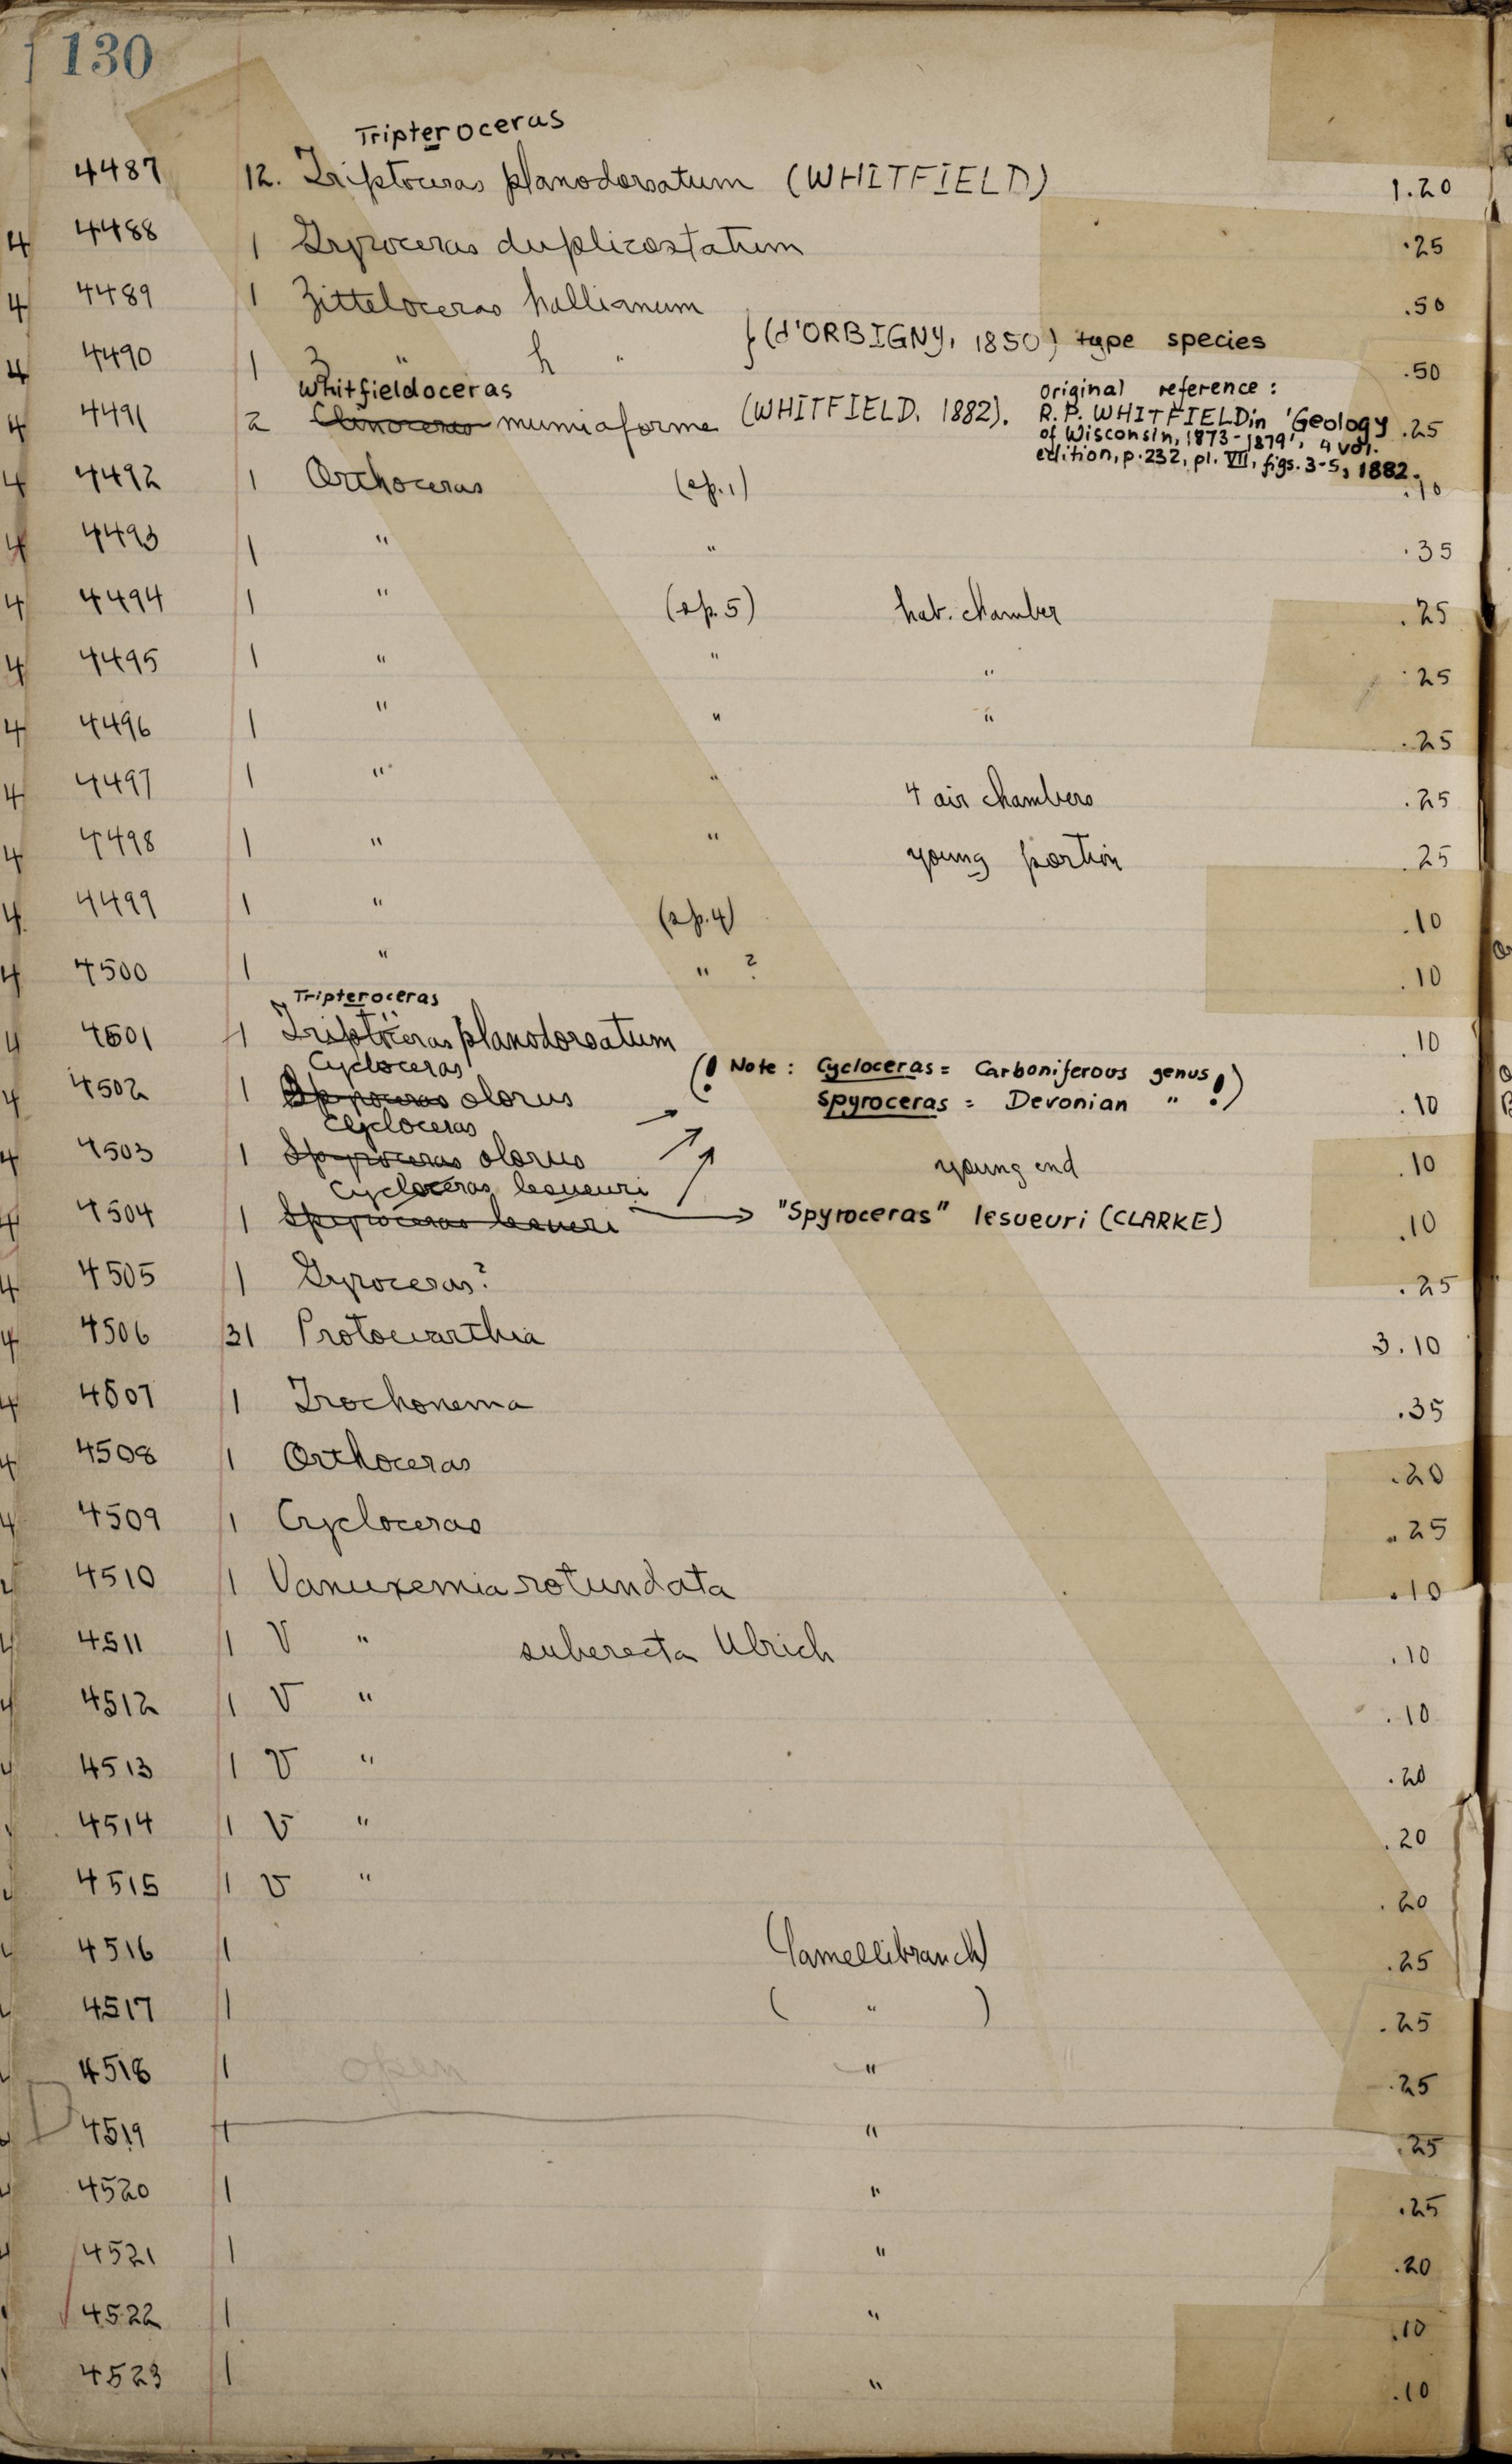 130
Tripteroceras
4487 12. Triptoceras planodorsatum (WHITFIELD) 1.20
4 4488 1 Gyroceras duplicostatum .25
4 4489 1 Zitteloceras hallianum .50
} (d'ORBIGNY, 1850) type species
4 4490 1 Z " h " .50
Whitfieldoceras
original reference :
4 4491 2 Clinoceras mumiaforme (WHITFIELD, 1882). R.P. WHITFIELD in 'Geology .25
of Wisconsin, 1873-1879', 4 vol.
edition, p. 232, pl. VII, figs. 3-5, 1882.
4 4492 1 Orthoceras (sp. 1) .10
4 4493 1 " " .35
4 4494 1 " (sp. 5) hab. chamber .25
4 4495 1 " " " .25
4 4496 1 " " " .25
4 4497 1 " " 4 air chambers .25
4 4498 1 " " young portion .25
4 4499 1 " (sp. 4) .10
4 4500 1 " " ? .10
Tripteroceras
4 4501 1 Triptoceras planodorsatum .10
Cycloceras (! Note : Cycloceras = Carboniferous genus !)
4 4502 1 Spyroceras olorus Spyroceras = Devonian " .10
Cycloceras
4 4503 1 Spyroceras olorus young end .10
Cycloceras lesueuri
4 4504 1 Spyroceras lesueri → "Spyroceras" lesueuri (CLARKE) .10
4 4505 1 Gyroceras? .25
4 4506 31 Protowarthia 3.10
4 4507 1 Trochonema .35
4 4508 1 Orthoceras .20
4 4509 1 Cycloceras .25
4510 1 Vanuxemia rotundata .10
4511 1 V " suberecta Ulrich .10
4512 1 V " .10
4513 1 V " .20
4514 1 V " .20
4515 1 V " .20
4516 1 (lamellibranch) .25
4517 1 ( " ) .25
4518 1 open " .25
4519 1 " .25
4520 1 " .25
4521 1 " .20
4522 1 " .10
4523 1 " .10